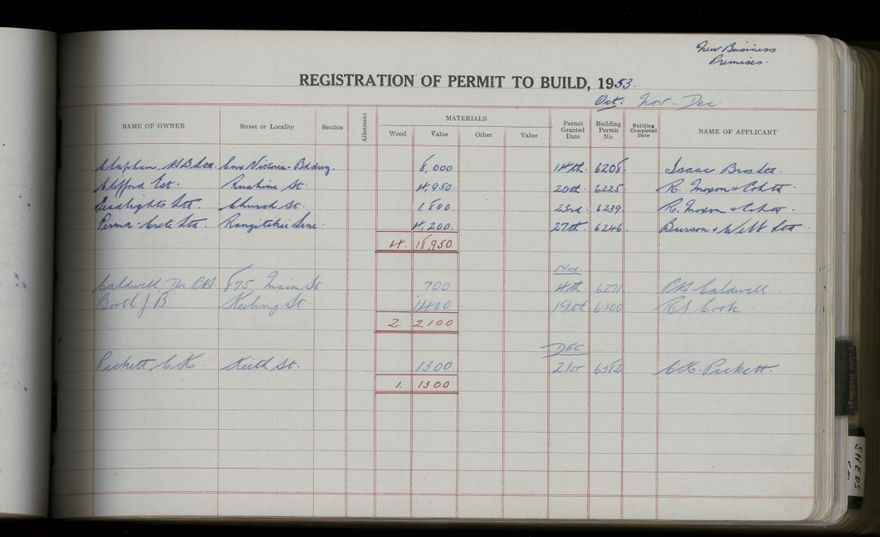 New Business
Premises.
REGISTRATION OF PERMIT TO BUILD, 1953.
Oct. Nov - Dec.
NAME OF OWNER Street or Locality Section Allotment MATERIALS Wood Value Other Value Permit Granted Date Building Permit No. Building Completed Date NAME OF APPLICANT
Clapham Ltd. Cnr Victoria 8,000 14th 6208. Isaac Bros Ltd
Clifford Est. Ruahine St. 4950 20th 6225 R. Moxon & Co Ltd.
Ltd. Church St. 1800. 23rd 6239. R. Moxon & Co Ltd.
Perma-Crete Ltd. Rangitikei Line 4,200. 27th 6246. & Webb Ltd
4. 18,950
Nov.
Caldwell, Dr 875, Main St 700 4th 6271 Caldwell
Booth J B Keeling St. 1400 19th 6300 Cook
2. 2100
DEC
Pickett C.K. Keith St. 1300 21st 6382 C.K. Pickett.
1. 1300
SHEDS